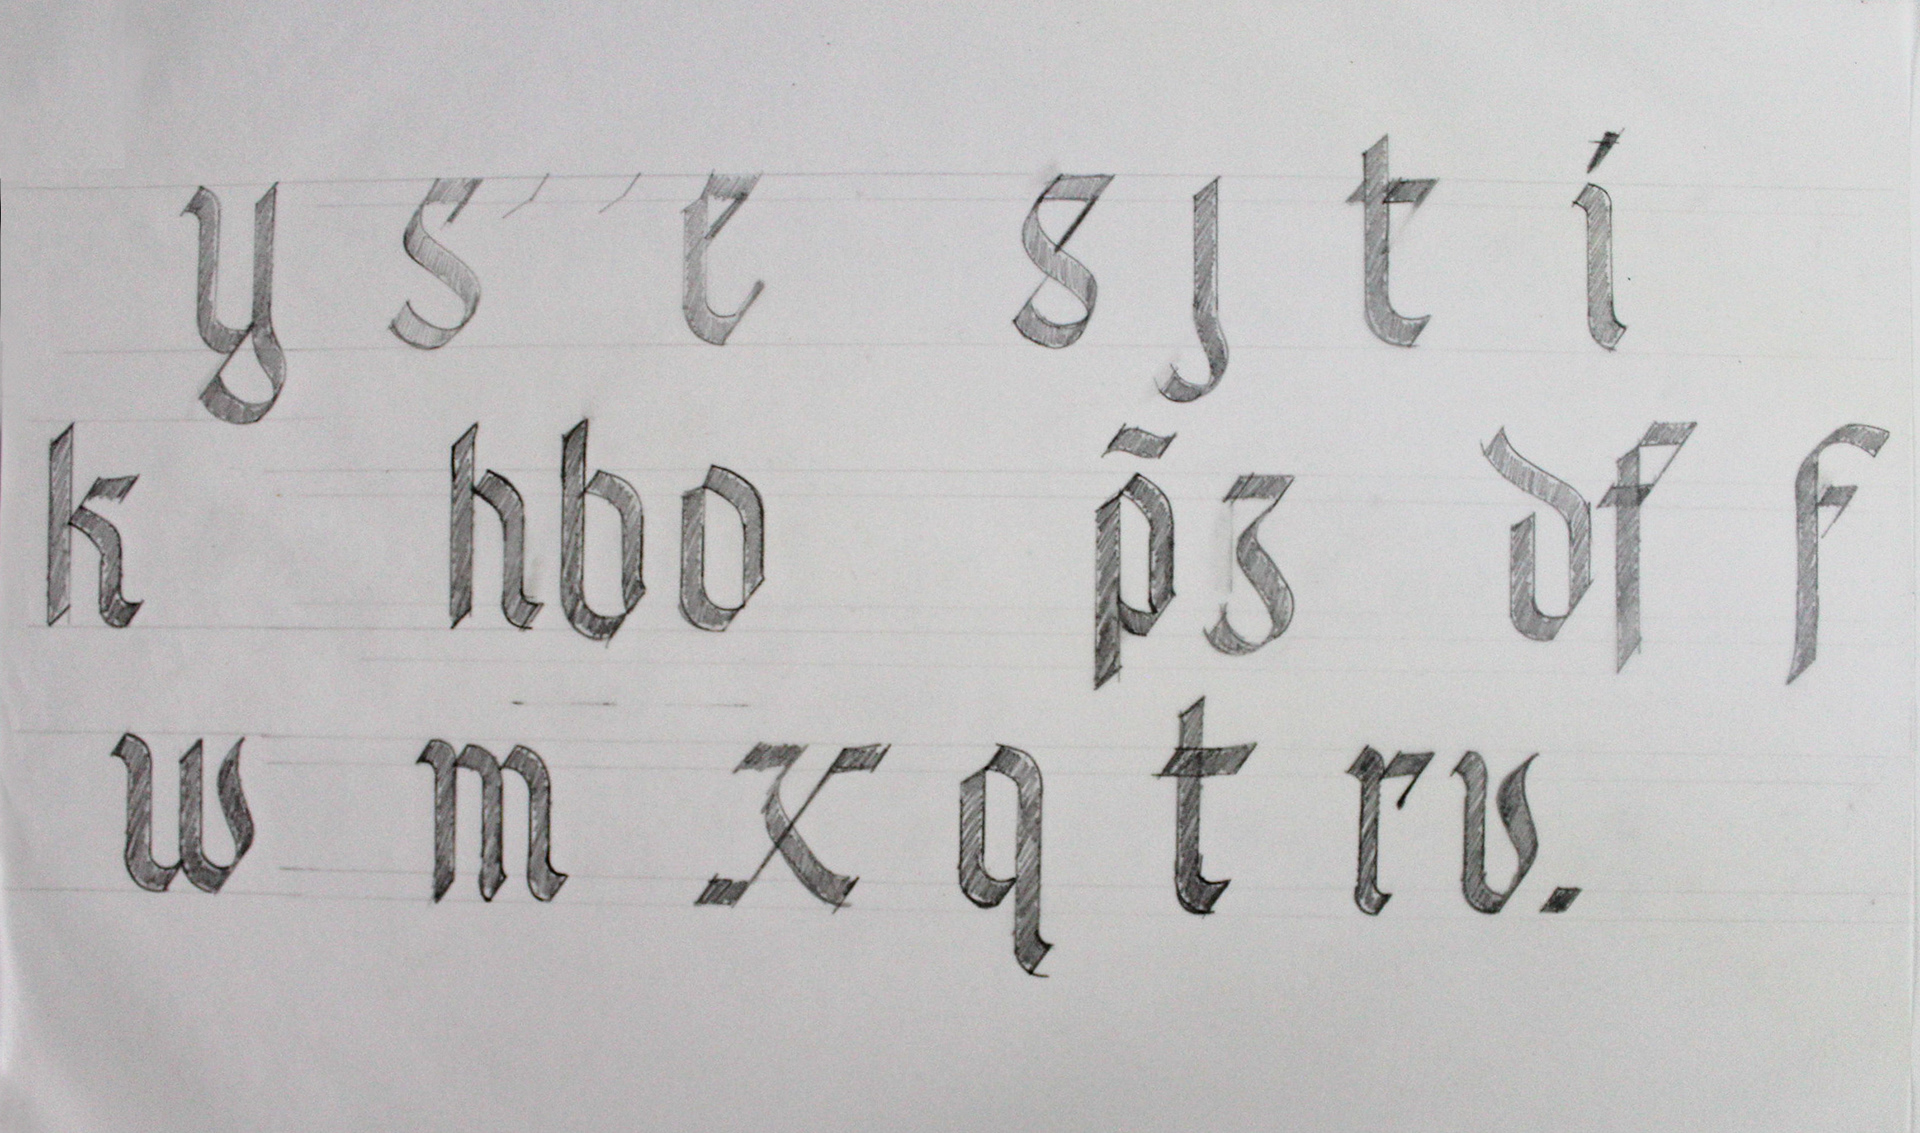 y s e s j t i
k h b o p̃ z d f f
w m x q t r v.